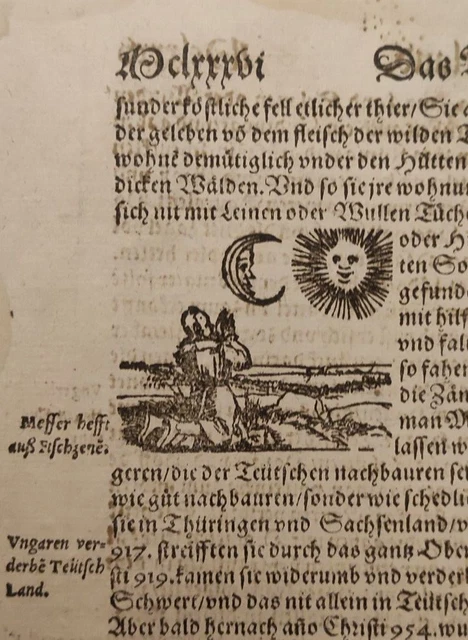 Mclxxxvi Das
sunder köstliche fell etlicher thier/ Sie
der geleben võ dem fleisch der wilden
wohnẽ demütiglich vnder den Hütten
dicken Wälden. Vnd so sie jre wohnu
sich nit mit Leinen oder Wullen Tüch
oder H
ten So
gefund
mit hilf
vnd fal
so fahen
die Zän
man M
lassen w
Messer hefft
auß Fischzenẽ.
geren/ die der Teütschen nachbauren se
wie gůt nachbauren/ sonder wie schedli
sie in Thüringen vnd Sachsenland/ v
917. streifften sie durch das gantz Ober
sti 919. kamen sie widerumb vnd verder
Vngaren ver-
derbẽ Teütsch
Land.
Schwert/ vnd das nit allein in Teütsch
Aber bald hernach año Christi 954. wu